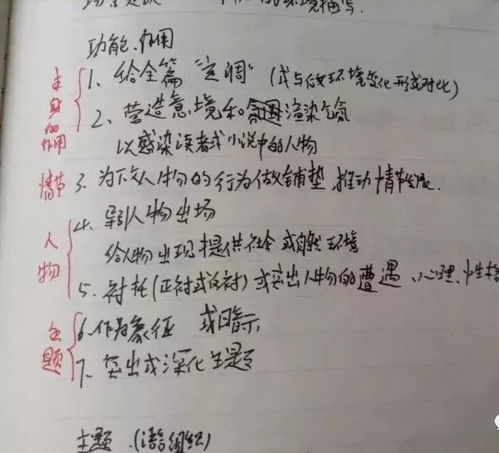 功能、作用
本身的作用
1、给全篇“定调”（或与后文环境变化形成对比）
2、营造意境和氛围渲染气氛
以感染读者或小说中的人物
情节
3、为下文人物的行为做铺垫，推动情节发展.
人物
4、引人物出场
给人物出现提供社会或自然环境
5、衬托（正衬或反衬）或突出人物的遭遇、心理、性格
主题
6、作为象征 或暗示
7、突出或深化主题
主题